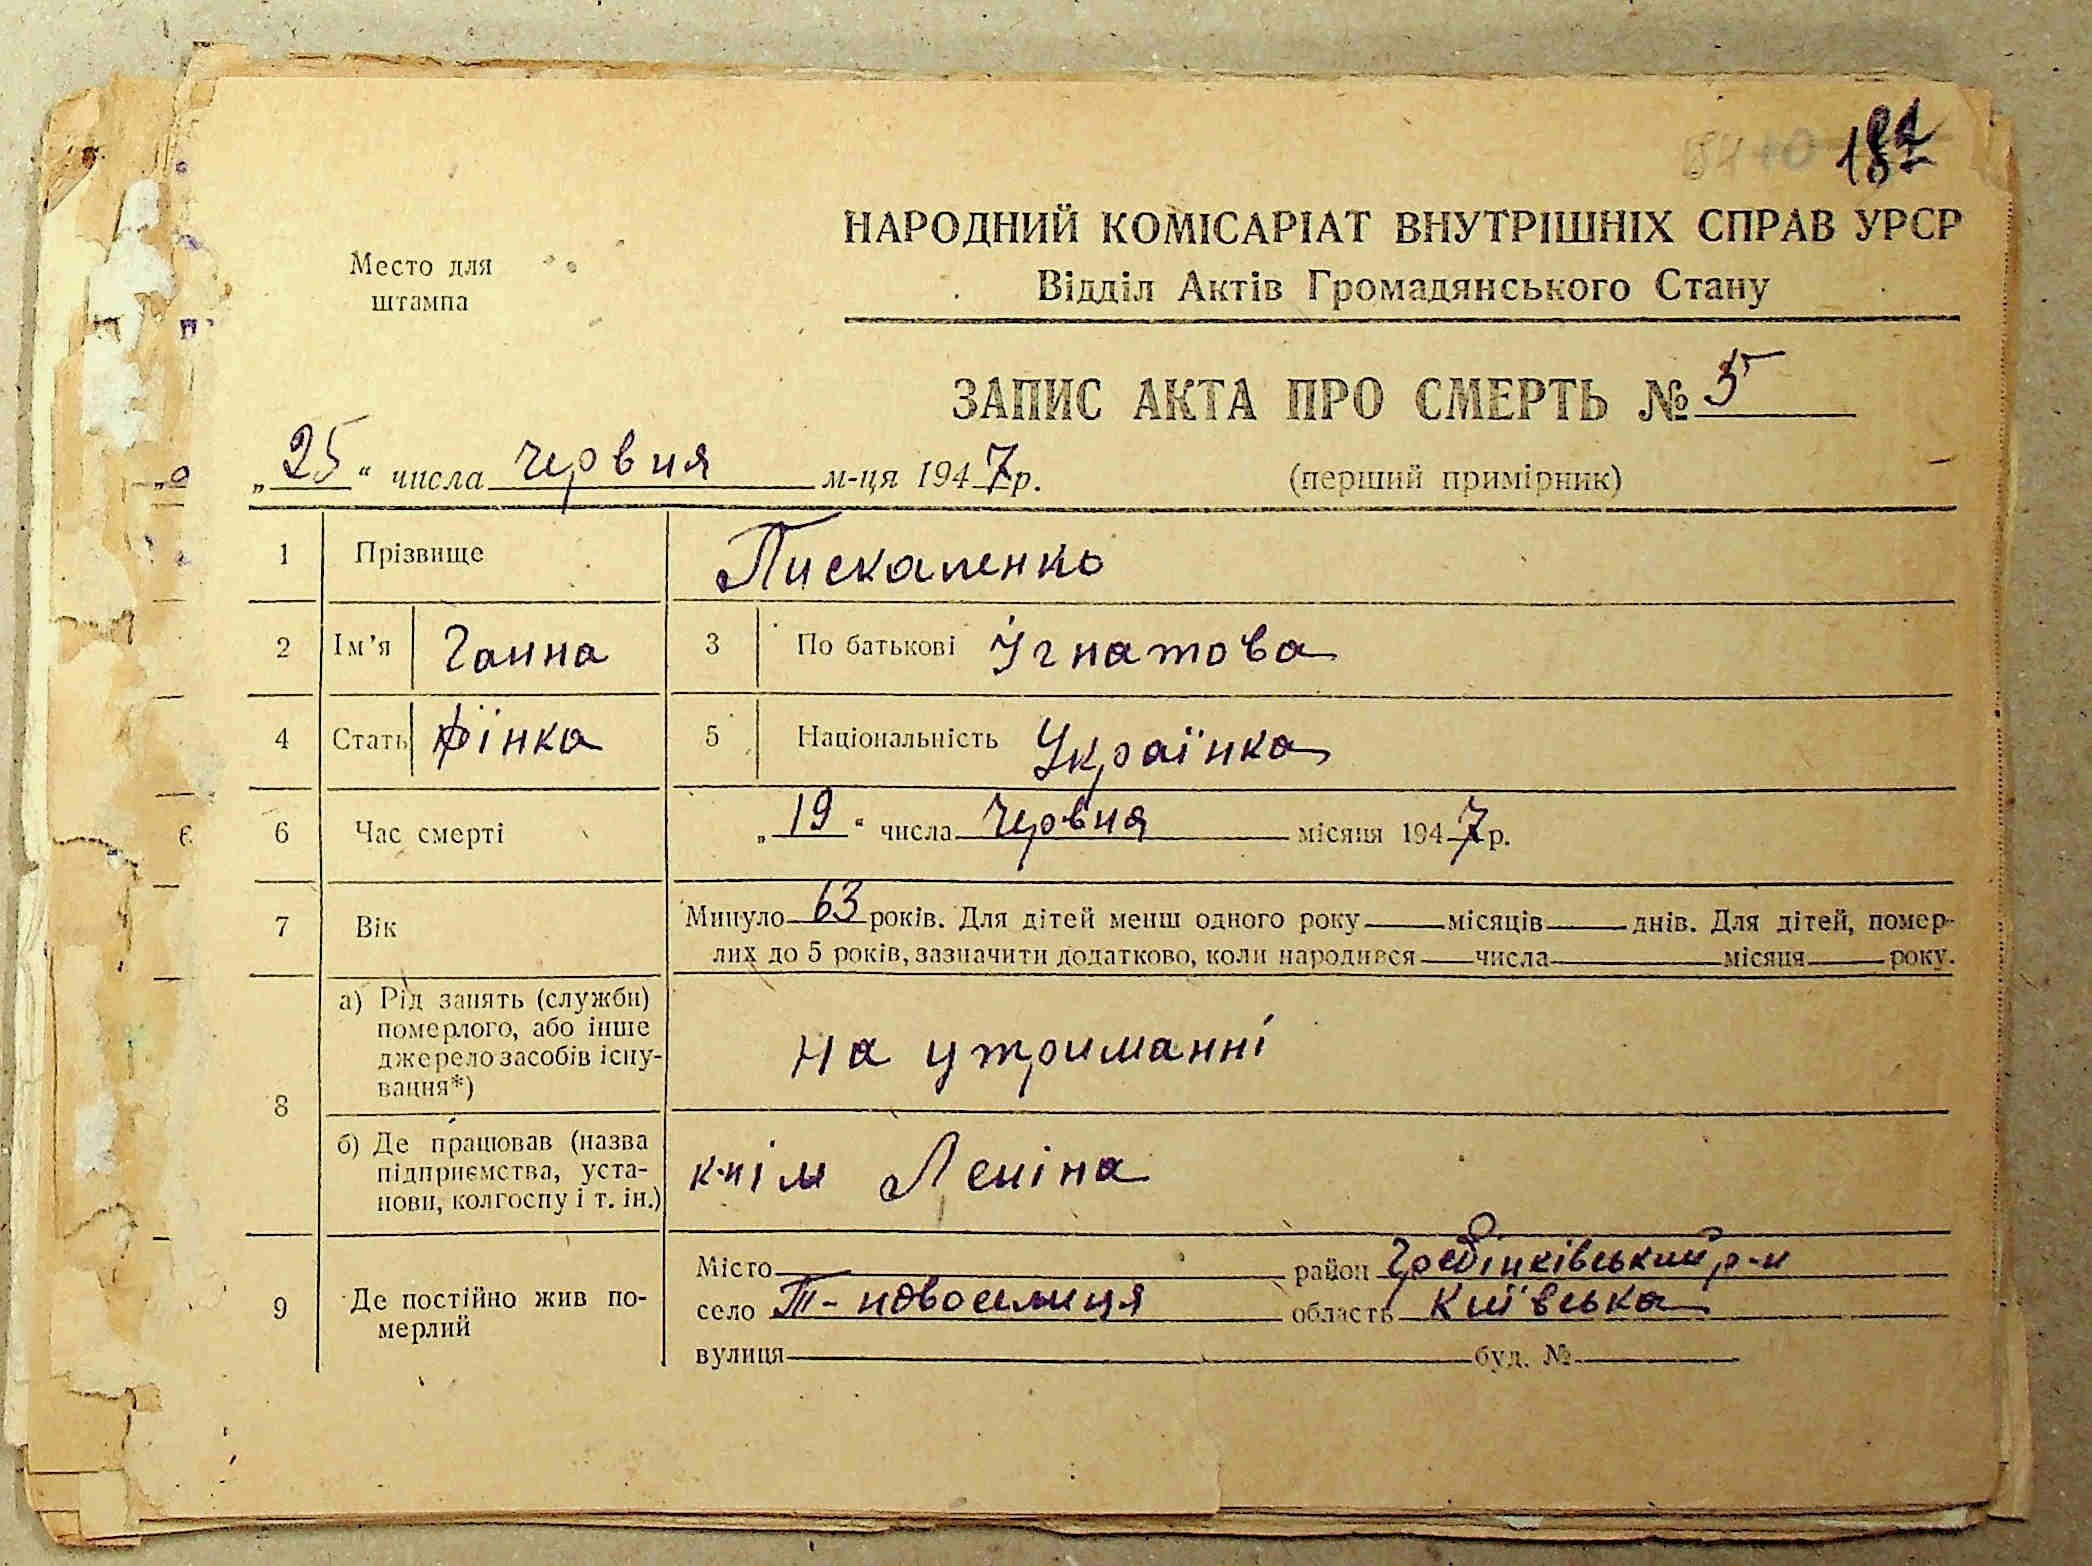 182
НАРОДНИЙ КОМІСАРІАТ ВНУТРІШНІХ СПРАВ УРСР
Место для
штампа
Відділ Актів Громадянського Стану
ЗАПИС АКТА ПРО СМЕРТЬ № 5
„25“ числа червня м-ця 1947 р. (перший примірник)
1 Прізвище Пискаленко
2 Ім’я Ганна 3 По батькові Ігнатова
4 Стать Жінка 5 Національність Українка
6 Час смерті „19“ числа Червня місяця 1947 р.
7 Вік Минуло 63 років. Для дітей менш одного року місяців днів. Для дітей, помер-
лих до 5 років, зазначити додатково, коли народився числа місяця року.
8 а) Рід занять (служби)
померлого, або інше
джерело засобів існу-
вання*)
На утриманні
б) Де працював (назва
підприємства, уста-
нови, колгоспу і т. ін.)
к-п ім Леніна
9 Де постійно жив по-
мерлий
Місто район Гребінківський р-н
село Т-новоселиця область Київська
вулиця буд. №